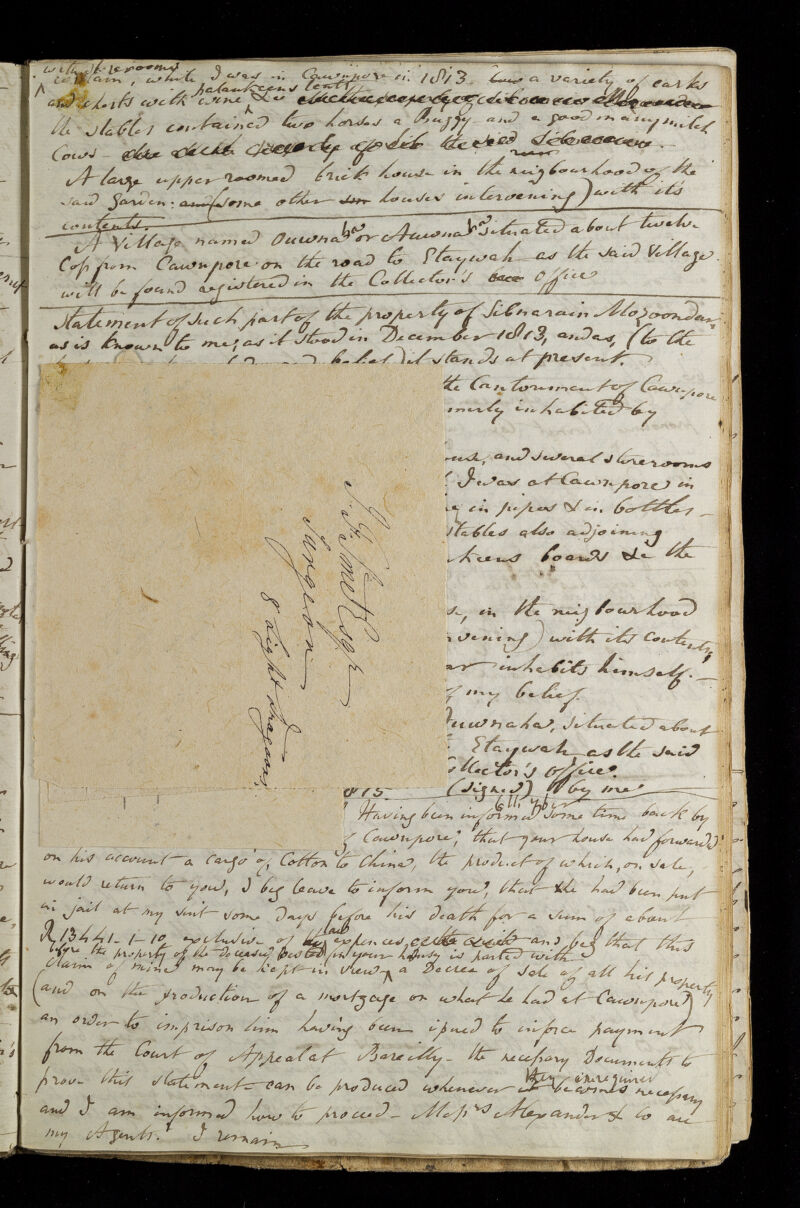 with storerooms
contain, while I was in Cawnpore in 1813 a variety of carks
and chests with wine & palankeens tents
the stables contained two horses a Buggy and a good many milch
Cows
A large upper roomed brick house in the neighbourhood of the
said Garden (some other houses intervening) with its
contents.
A Village named Ouwnaha or Auwnaha situated about twelve
Cos from Cawnpore on the road to Etaywah as the said Village
will be found registered in the Collector's Office
Statement of such part of the property of Sibnarain Mozoondar,
as is known to me, as it stood in December 1813, and as, (to the
belief) it stands at present.
the Cantonment of Cawnpore
merly inhabited by
use, and several storerooms
I was at Cawnpore in
in pipes & in bottles
stables also adjoining
keens boards &c the
se, in the neighbourhood
vening) with its contents,
ar inhabits himself.
of my belief.
Auwnaha, situated about
Etaywah as the said
ollector's Office.
1815. (signed) by me
Surgeon
8 Light Dragoons
Having been informed some time back by
Cawnpore, that your house had forwarded
on his account a cargo of Cotton to China, the product of which, on sale,
would return to you, I beg leave to inform you, that he had been put
in jail at my suit some days before his death for a sum of about
R 13441-1-10 exclusive of law expences, and beg that this
before the property of the deceased vested in your house is parted with
claim of mine may be kept in view a Decree of sale of all his property
(and on the production of a mortgage on what he had at Cawnpore)
an order to imprison him having been issued to inforce payment
from the Court of Appeal at Bareilly - the necessary Documents to
prove this statement can be produced whenever they are required
becomes necessary
and I am informed how to proceed - Messrs Alexander & Co are
my Agents. I remain